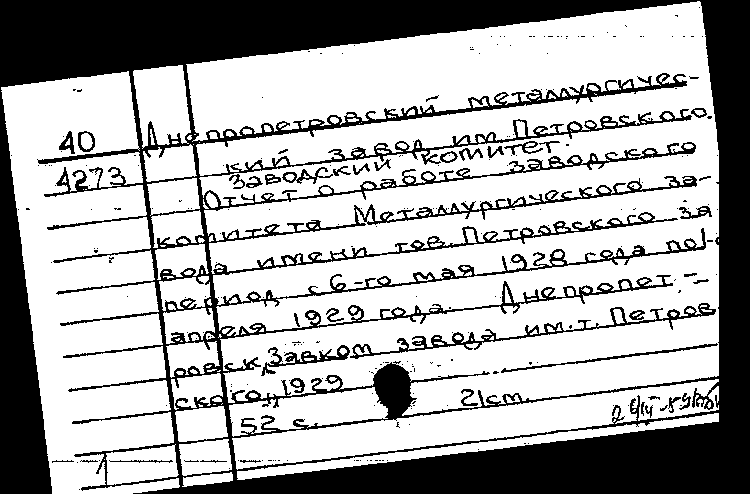 40 Днепропетровский металлургичес-
кий завод им. Петровского.
Заводский комитет.
4273
Отчет о работе заводского
комитета Металлургического за-
вода имени тов. Петровского за
период с 6-го мая 1928 года по 1-
апреля 1929 года. Днепропет-
ровск, Завком завода им. т. Петров
ского, 1929
52 с. 21 cm.
1